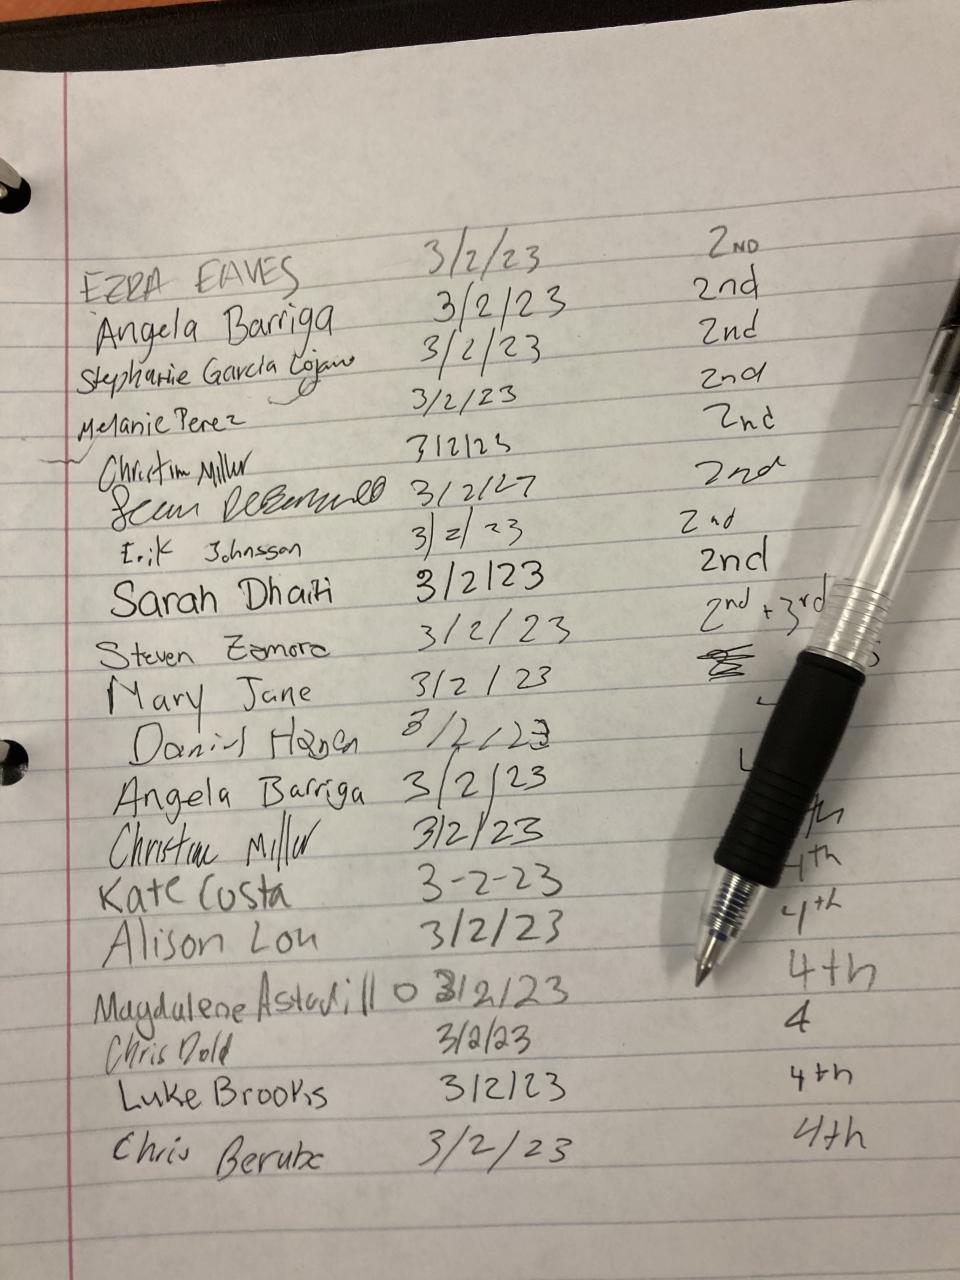 EZRA EAVES 3/2/23 2ND
Angela Barriga 3/2/23 2nd
Stephanie Garcia 3/2/23 2nd
Melanie Perez 3/2/23 2nd
Christine Miller 3/2/23 2nd
Sean 3/2/23 2nd
Erik Johnsson 3/2/23 2nd
Sarah Dhaiti 3/2/23 2nd
Steven Zamora 3/2/23 2nd + 3rd
Mary Jane 3/2/23
Daniel 3/2/23
Angela Barriga 3/2/23
Christine Miller 3/2/23 th
Kate Costa 3-2-23 4th
Alison Lou 3/2/23 4th
Magdalene Astudillo 3/2/23 4th
Chris Dold 3/2/23 4
Luke Brooks 3/2/23 4th
Chris Berube 3/2/23 4th